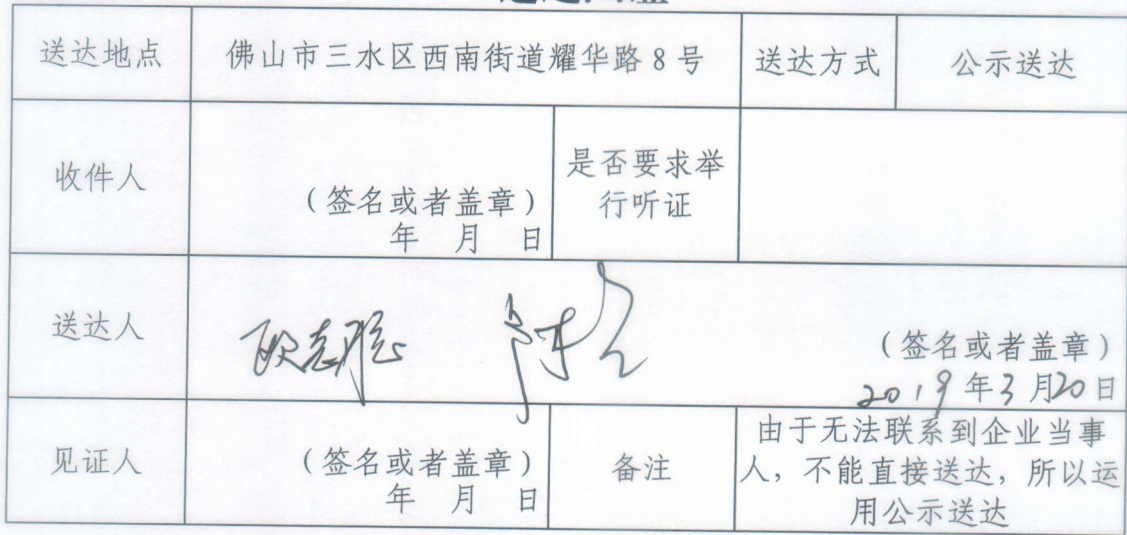 送达地点 佛山市三水区西南街道耀华路8号 送达方式 公示送达
收件人 (签名或者盖章) 是否要求举
年 月 日 行听证
送达人 欧志聪
(签名或者盖章)
2019年3月20日
见证人 (签名或者盖章) 备注 由于无法联系到企业当事
年 月 日 人,不能直接送达,所以运
用公示送达